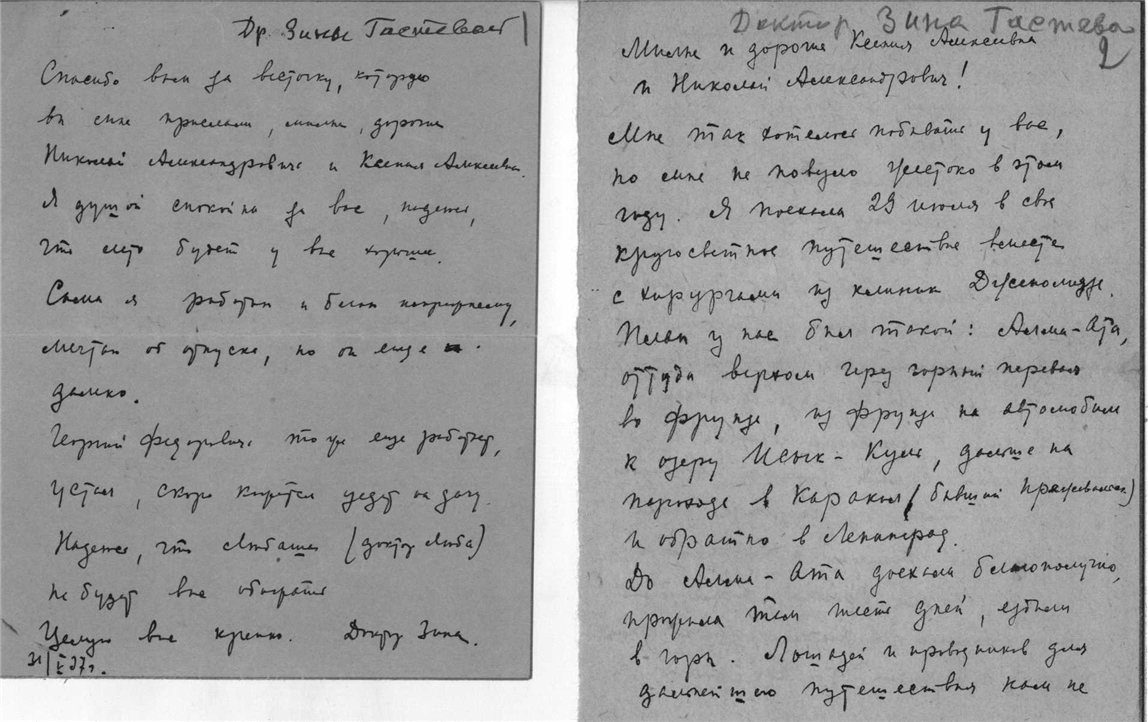 Др. Зине Гастевой
Спасибо вам за весточку, которую
вы мне прислали, милые, дорогие
Николай Александрович и Ксения Алексеевна.
Я душой спокойна за вас, надеюсь,
что лето будет у вас хорошее.
Сама я работаю и бегаю попрежнему,
мечтаю об отпуске, но он еще
далеко.
Георгий Федорович тоже еще работает,
устал, скоро уедет на дачу.
Надеюсь, что Любаша (доктор Люба)
не будет вас обижать
Целую вас крепко. Доктор Зина.
31/V 37 г.
Доктор Зина Гастева
2
Милые и дорогие Ксения Алексеевна
и Николай Александрович!
Мне так хотелось побывать у вас,
но мне не повезло жестоко в этом
году. Я поехала 29 июля в свое
кругосветное путешествие вместе
с хирургами из клиники Джанелидзе.
План у нас был такой: Алма-Ата,
оттуда верхом через горный перевал
во Фрунзе, из Фрунзе на автомобиле
к озеру Иссык-Куль, дальше на
пароходе в Каракол (бывший Пржевальск)
и обратно в Ленинград.
До Алма-Ата доехали благополучно,
прожили там шесть дней, ездили
в горы. Лошадей и проводников для
дальнейшего путешествия нам не